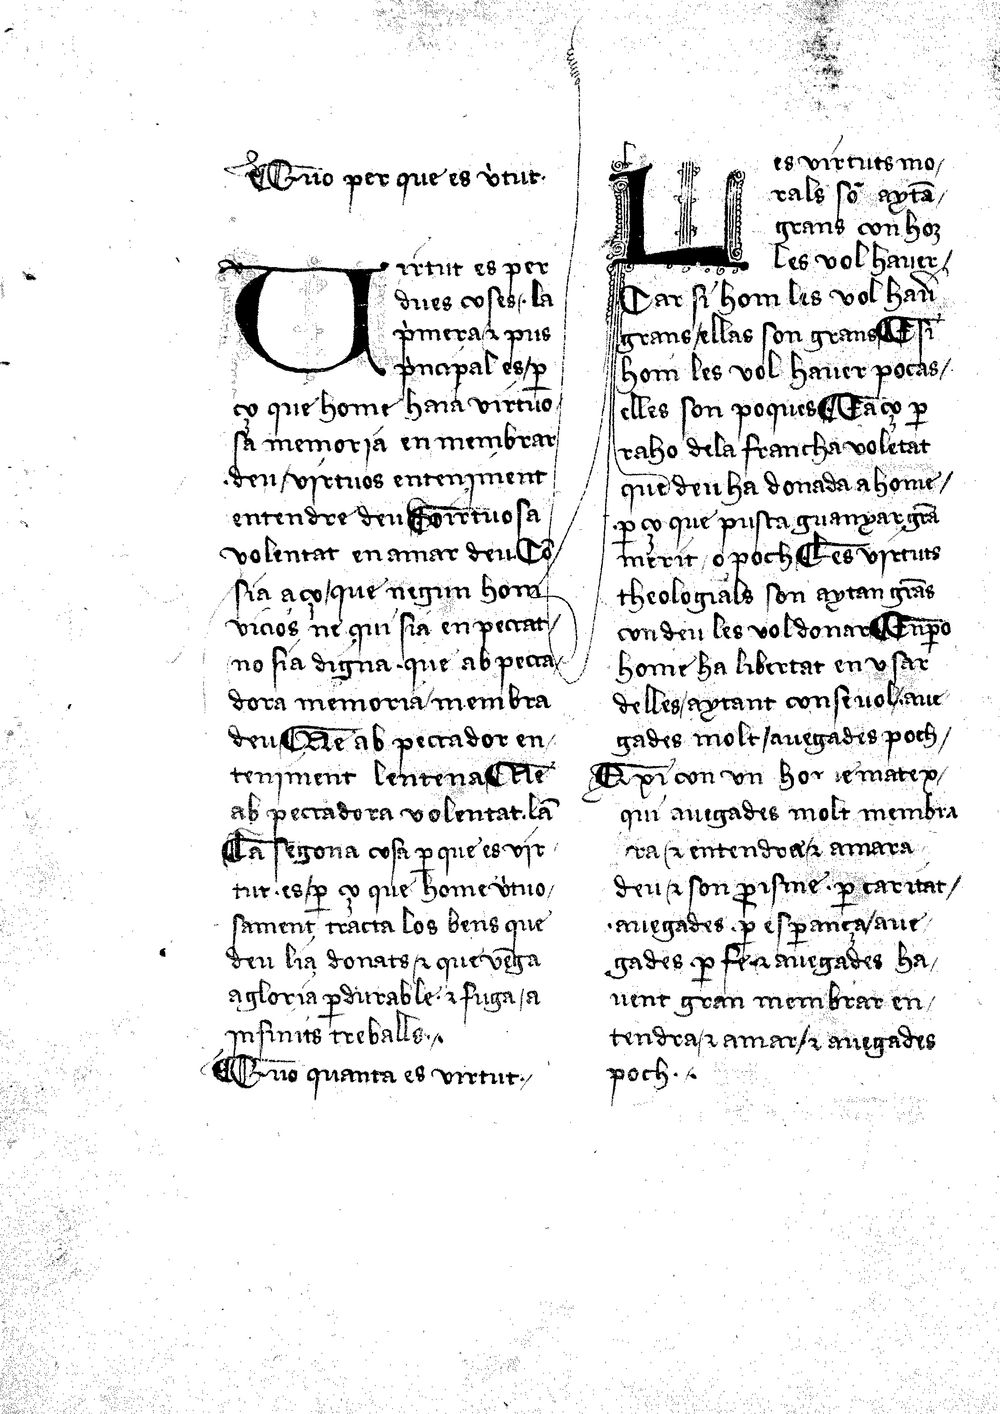 Q̃uo per que es v̓tut·
Virtut es per
dues coses· la
p̓mera ⁊ pus
p̓ncipal es/ ꝑ
ço que home haia virtuo/
sa memoria en membrar
deu/ virtuos enteniment
entendre deu E virtuosa
volentat en amar deu Cõ
sia aço/ que negun hom
vicios ne qui sia en peccat/
no sia digna· que ab pecca/
dora memoria/ membra
deu Ne ab peccador en/
teniment lentena Ne
ab peccadora volentat· lã
La segona cosa ꝑ que es vir
tut· es/ ꝑ ço que home v̓tuo/
sament tracta los bens que
deu lia donats/ ⁊ que vẽga
a gloria ꝑdurable· ⁊ fuga/ a
infinits treballs·/.
Q̃uo quanta es virtut·/
Les virtuts mo/
rals sõ aytã/
grans con hoꝫ
les vol hauer/
Car si hom les vol hau̓
grans/ ellas son grans E si
hom les vol hauer pocas/
elles son poques E açо ꝑ
raho dela francha voletat
que deu ha donada a home/
ꝑ ço que pusca guanyar grã
merit/ o poch Les virtuts
theologials son aytan grãs
con deu les vol donar Enꝑo
home ha libertat en vsar
delles/ aytant con se uol/ aue
gades molt/ auegades poch/
Axi con vn home matex/
qui auegades molt membra
ra/ ⁊ entendra/ ⁊ amara
deu/ ⁊ son ꝓisme· ꝑ caritat/
·auegades· ꝑ esꝑança/ aue
gades ꝑ fe· ⁊ auegades ha/
uent gran membrar en/
tendra/ ⁊ amar/ ⁊ auegades
poch·/.